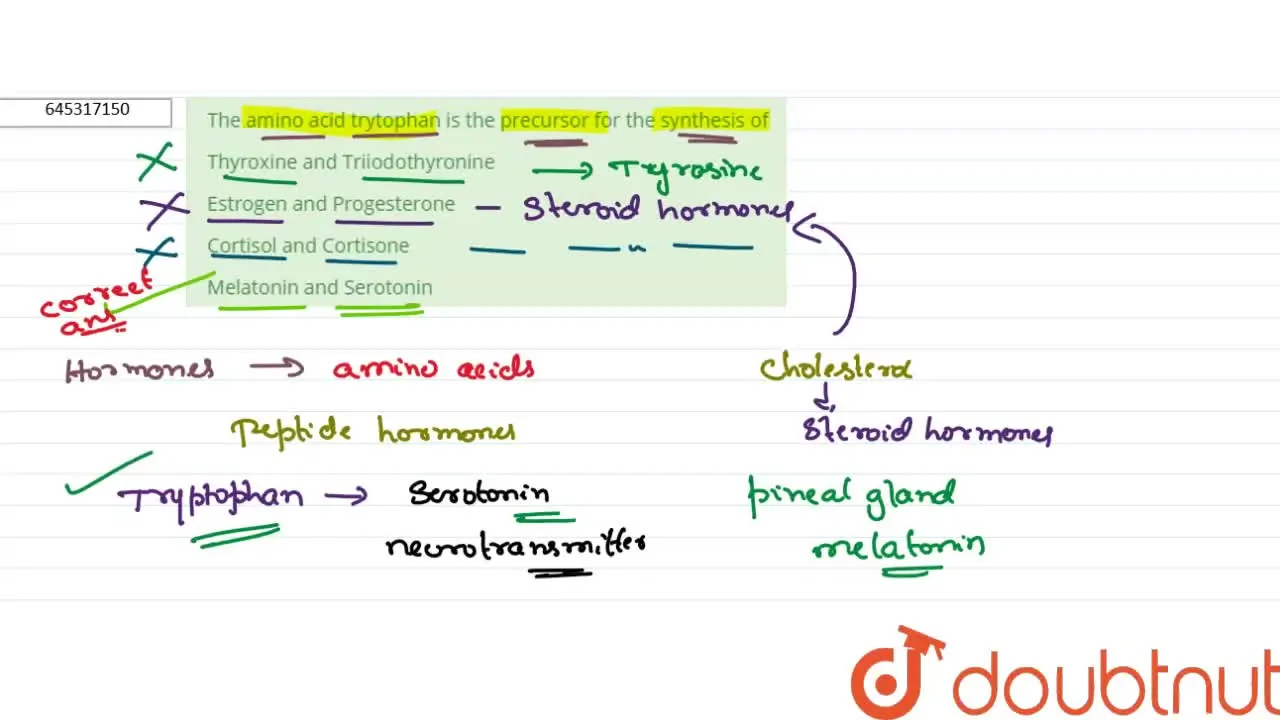 645317150
The amino acid trytophan is the precursor for the synthesis of
Thyroxine and Triiodothyronine → Tyrosine
Estrogen and Progesterone — Steroid hormones
Cortisol and Cortisone — — " —
Melatonin and Serotonin
correct
ans
Hormones → amino acids
Cholesterol
↓
Peptide hormones
Steroid hormones
Tryptophan → Serotonin
pineal gland
neurotransmitter
melatonin
doubtnut